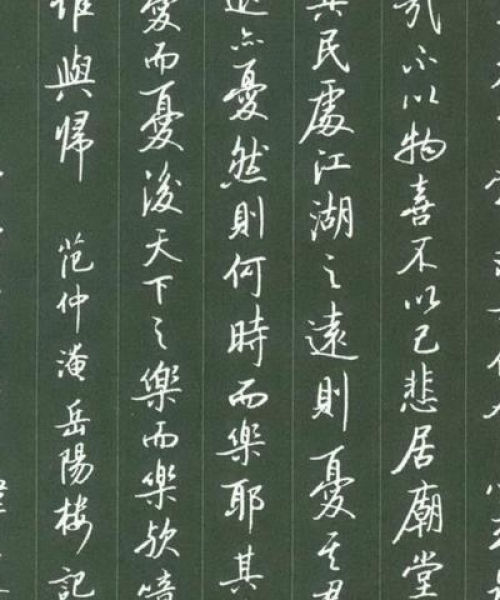 哉不以物喜不以己悲居廟堂
其民處江湖之遠則憂其君
退亦憂然則何時而樂耶其
憂而憂後天下之樂而樂欤噫
誰與歸 范仲淹岳陽楼記